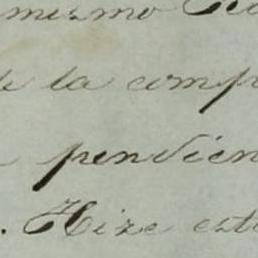 mismo
de la comp
pendien
. Hize est